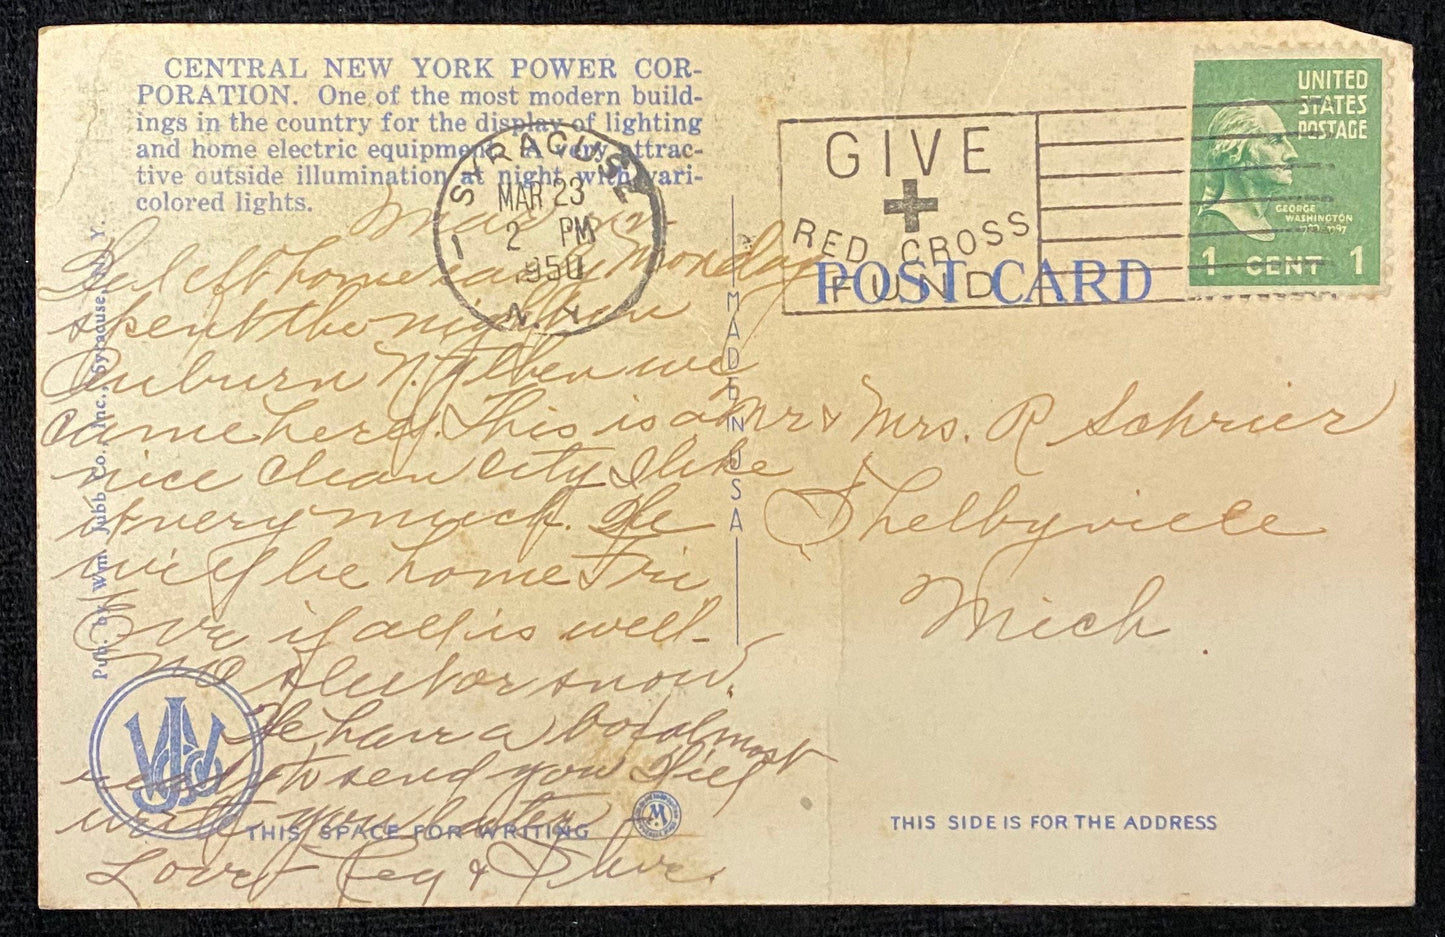 CENTRAL NEW YORK POWER COR-
PORATION. One of the most modern build-
ings in the country for the display of lighting
and home electric equipment. A very attrac-
tive outside illumination at night with vari-
colored lights.
SYRACUSE
MAR 23
2 PM
1950
N.Y.
1
GIVE
RED CROSS
FUND
UNITED
STATES
POSTAGE
GEORGE
WASHINGTON
1789-1797
1 CENT 1
POST CARD
left home early Monday
spent the night in
Auburn N.Y. then we
came here. This is a
nice clean City I like
it very much. We
will be home Fri
Eve if all is well-
no sleet or snow.
We have a box almost
ready to send you I'll
write you later
Love Peg & Dave.
Mr & Mrs. R Schrier
Shelbyville
Mich.
MADE IN USA
Pub. by Wm. Jubb Co., Inc., Syracuse, N. Y.
WJCo
W
THIS SPACE FOR WRITING
THIS SIDE IS FOR THE ADDRESS